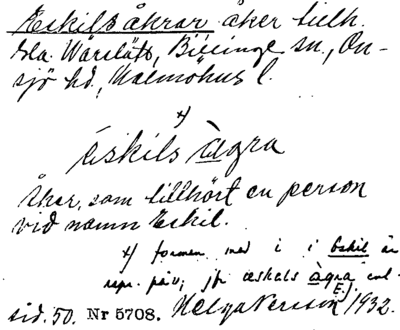 Eskilsåkrar åker tillh.
Lla. Wärslätt, Billinge sn., On-
sjö hd., Malmöhus l.
x)
æskils àgra
Åker, som tillhört en person
vid namn Eskil.
x) formen med i i Eskil är
repr. på v; jfr æskels àgra enl-
E.J.
sid. 50. Nr 5708. Helga Persson 1932.